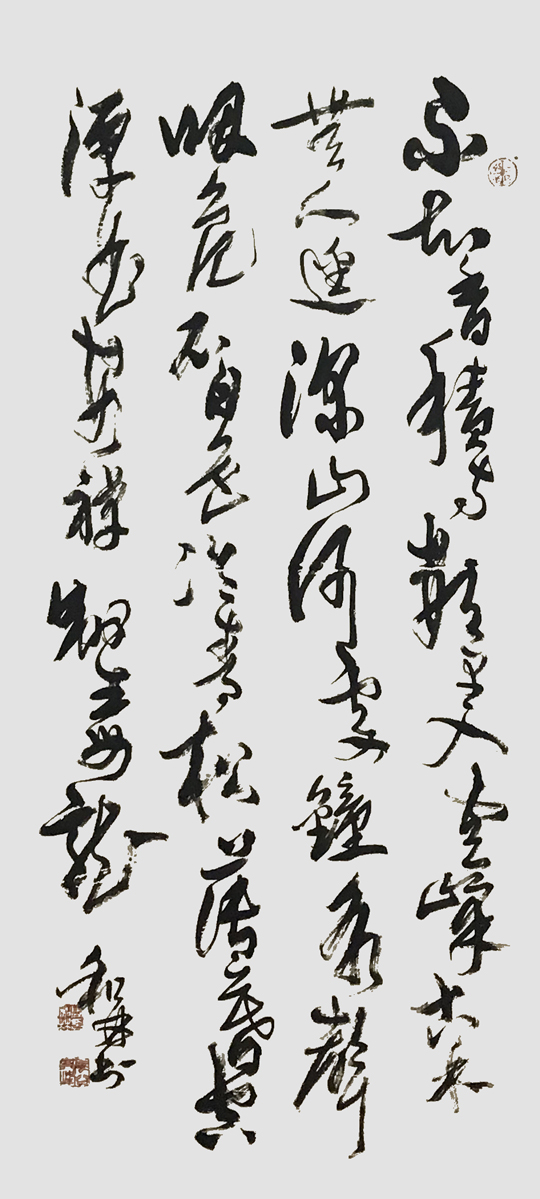 不知香積寺數里入雲峰古木
無人逕深山何處鐘泉聲
咽危石日色冷青松薄暮空
潭曲安禪制毒龍